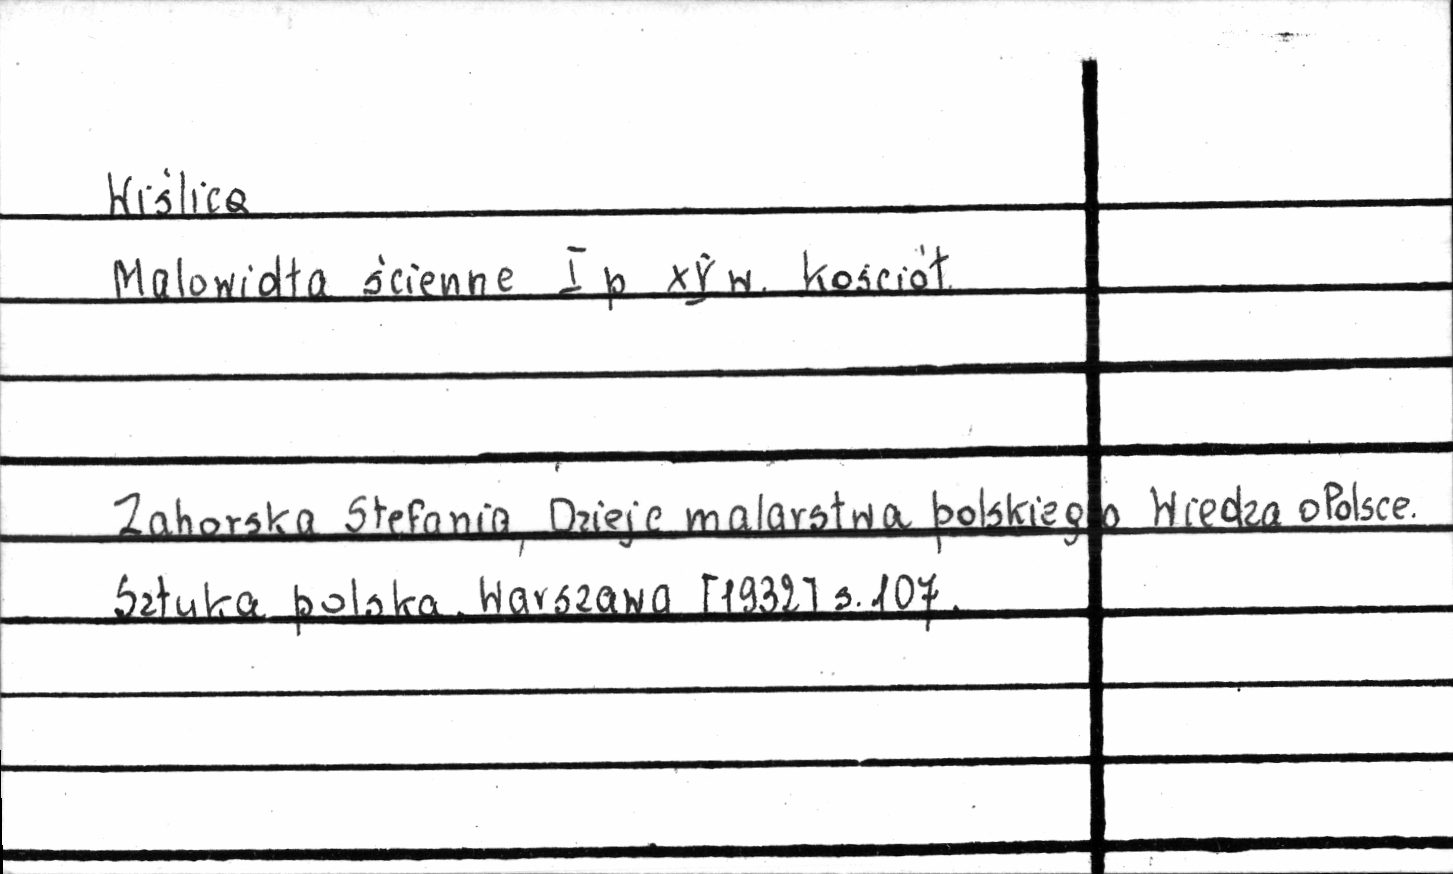 Wiślica
Malowidła ścienne I p XV w. kościół.
Zahorska Stefania, Dzieje malarstwa polskiego Wiedza o Polsce.
Sztuka polska. Warszawa [1932] s. 107.